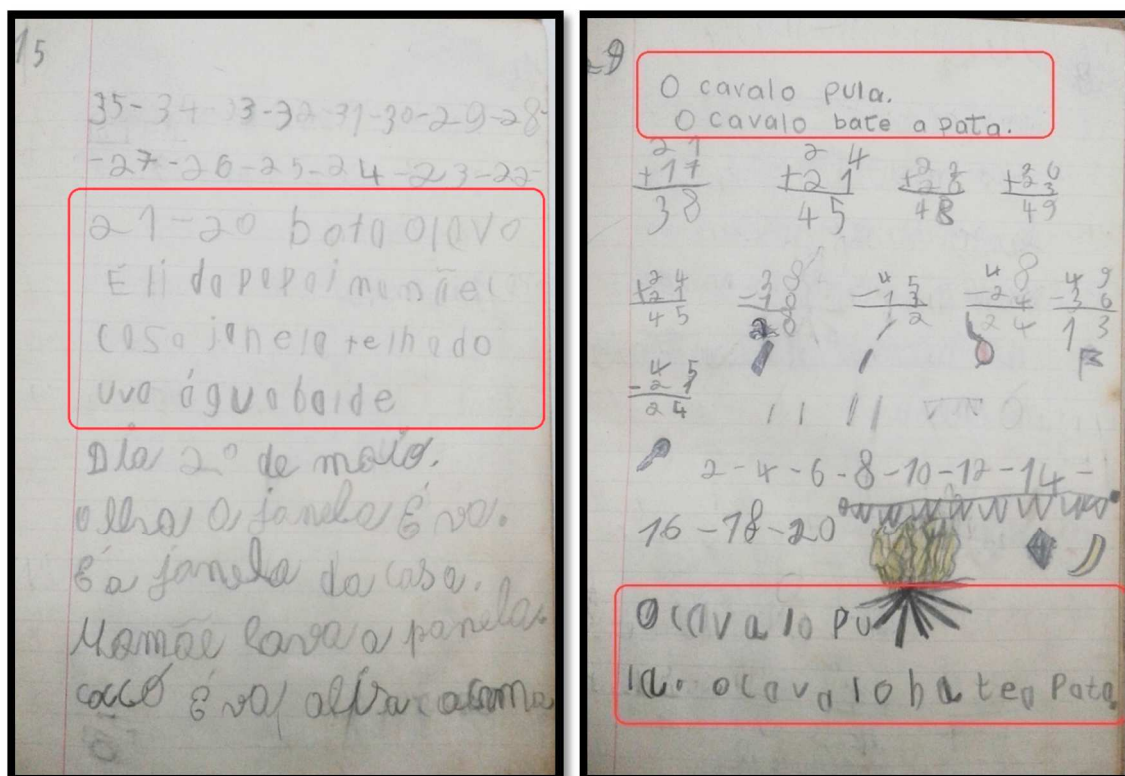 15
35-34-33-32-31-30-29-28-
-27-26-25-24-23-22-
21-20 bota olavo
Eli da papai mamãe
casa janela telhado
uva água balde
Dia 2º de maio.
olha a janela É va.
É a janela da casa.
Mamãe lava a panela.
cacó É va
9
O cavalo pula.
O cavalo bate a pata.
21 24 22 26
+17 +21 +23
38 45 48 49
24 38 45 48 49
+21 -10 -24 -36
45 28 2 24 13
45
-21
24
2-4-6-8-10-12-14-
16-18-20
O cavalo pu
la. o cavalo bate a Pata.